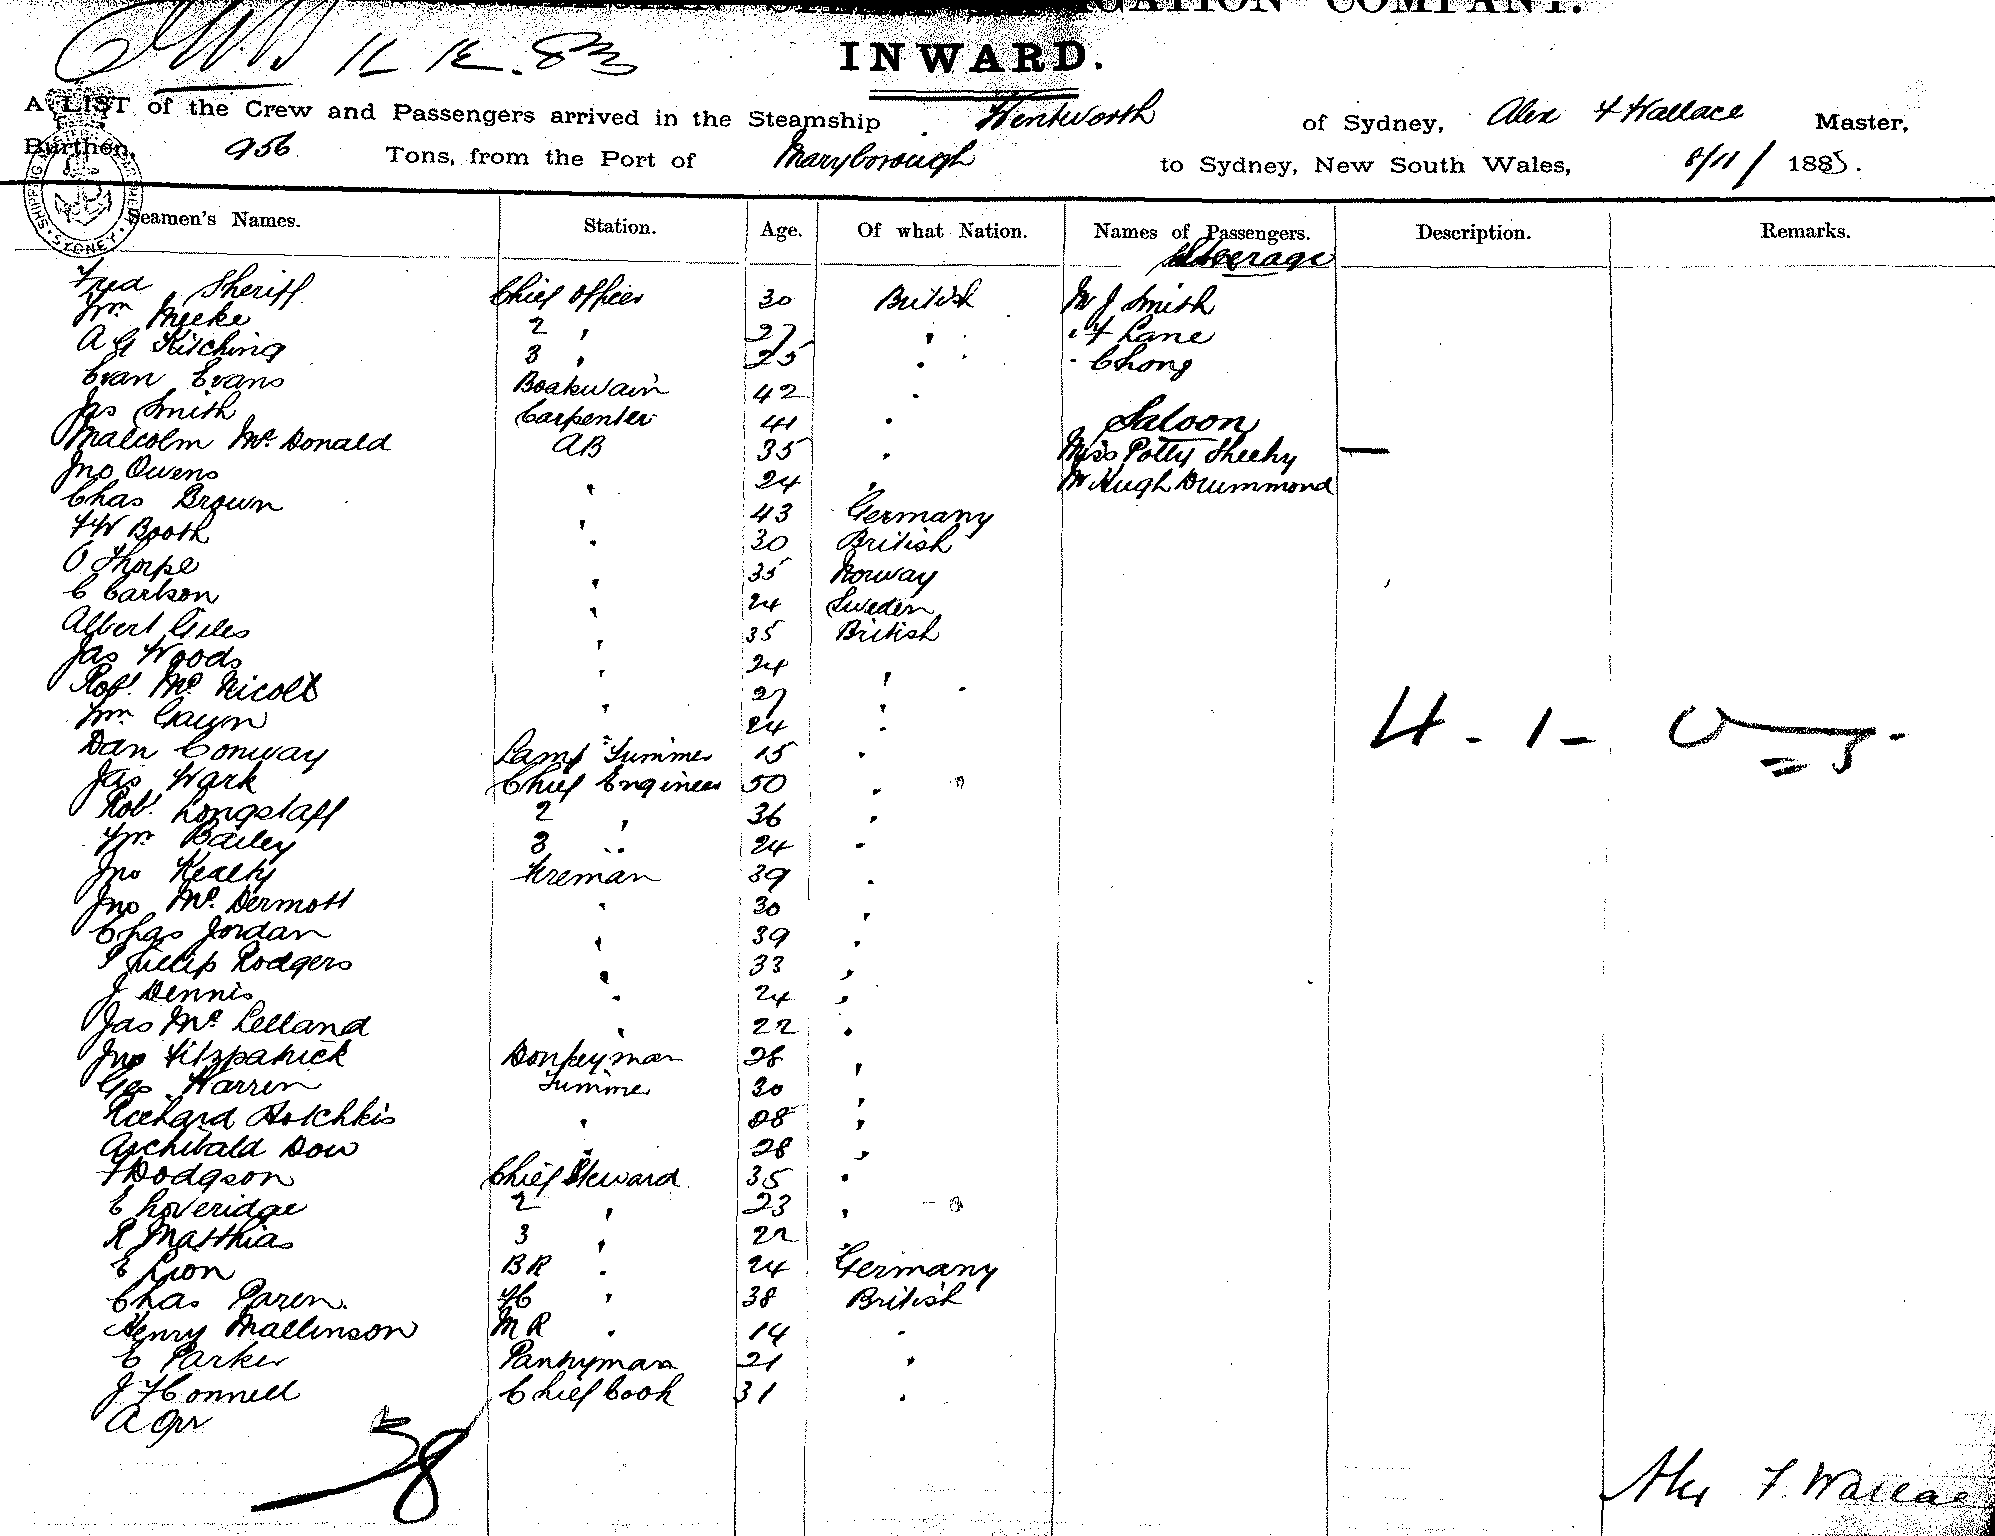 GATION COMPANY.
INWARD.
A LIST of the Crew and Passengers arrived in the Steamship Wentworth of Sydney, Alex F Wallace Master,
Burthen, 956 Tons, from the Port of Maryborough to Sydney, New South Wales, 8/11/ 1885.
Seamen's Names. Station. Age. Of what Nation. Names of Passengers. Description. Remarks.
Steerage
Fred Sheriff Chief Officer 30 British Mr J Smith
Wm Meeke 2 " 27 " " F Lane
A G Kitching 3 " 25 " " Chong
Evan Evans Boatswain 42 "
Jas Smith Carpenter 41 " Saloon
Malcolm McDonald AB 35 " Miss Potty Sheehy —
Jno Owens " 24 " Mr Hugh Drummond
Chas Brown " 43 Germany
F W Booth " 30 British
O Thorpe " 35 Norway
C Carlson " 24 Sweden
Albert Giles " 35 British
Jas Woods " 24
Robt McNicoll " 27 "
Wm Gawn " 24 "
Dan Conway Lamp Trimmer 15 "
Jas Wark Chief Engineer 50 "
Robt Longstaff 2 " 36 "
Wm Bailey 3 " 24 "
Jno Kealty Fireman 39 "
Jno McDermott " 30 "
Chas Jordan " 39 "
Phillip Rodgers " 33 "
J Dennis " 24 "
Jas McLelland " 22 "
Jno Fitzpatrick Donkeyman 28 "
Geo Warren Trimmer 30 "
Richard Hotchkis " 28 "
Archibald Dow " 28 "
F Dodgson Chief Steward 35 "
E Loveridge 2 " 23 "
R Matthias 3 " 22 "
E Lion BR " 24 Germany
Chas Paren. FC " 38 British
Henry Mallinson MR " 14 "
E Parker Pantryman 21 "
J F Connell Chief Cook 31 "
A Orr
38
4 - 1 -
Alex F. Wallace